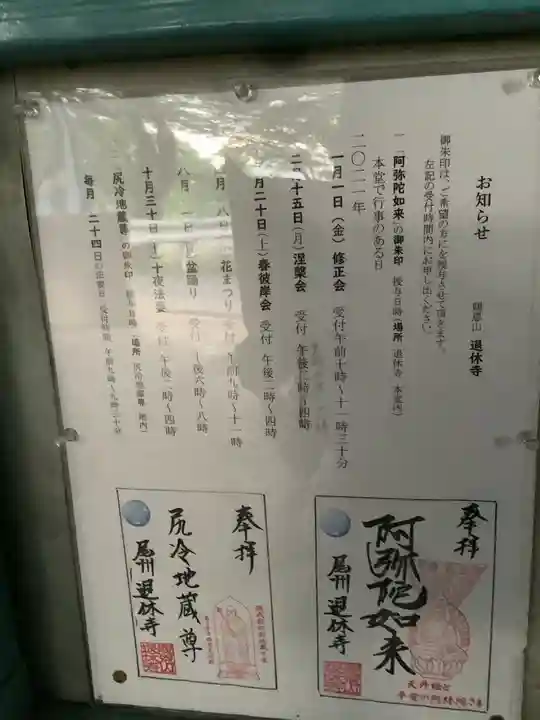 お知らせ
退休寺
御朱印は、ご希望の方にを授与させて頂きます。
左記の受付時間内にお申し出ください。
一「阿弥陀如来」の御朱印 授与日時(場所 退休寺 本堂内)
本堂で行事のある日
二〇二一年
一月一日(金)修正会 受付午前十時〜十一時三十分
二月十五日(月)涅槃会 受付 午後二時〜四時
月二十日(土)春彼岸会 受付 午後二時〜四時
月 八日 花まつり 受付 午前九時〜十一時
八月 日 盆踊り 受付 後六時〜八時
十月三十日(土)十夜法要 受付 午後二時〜四時
尻冷地蔵尊」の御朱印 授与日時(場所 尻冷地蔵尊 地内)
毎月 二十四日の法要日 受付時間 午前九時〜九時三十分
奉拝
阿弥陀如来
尾州 退休寺
奉拝
尻冷地蔵尊
尾州 退休寺